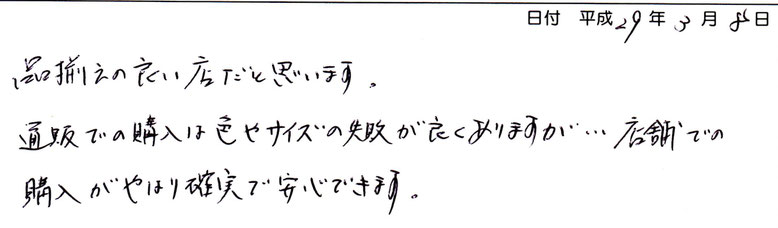 日付 平成29年3月8日
品揃えの良い店だと思います。
通販での購入は色やサイズの失敗が良くありますが…店舗での
購入がやはり確実で安心できます。